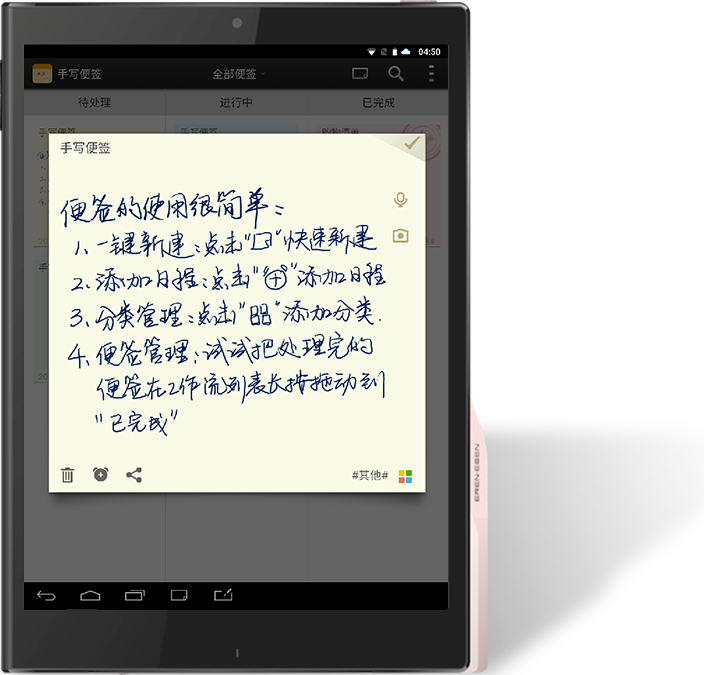 04:50
手写便签
全部便签
待处理 进行中 已完成
手写便签 手写便签 购物清单
手写便签
便签的使用很简单：
1、一键新建：点击“”快速新建
2、添加日程：点击“”添加日程
3、分类管理：点击“”添加分类.
4、便签管理：试试把处理完的
便签在工作流列表长按拖动到
“已完成”
#其他#
EREN EBEN